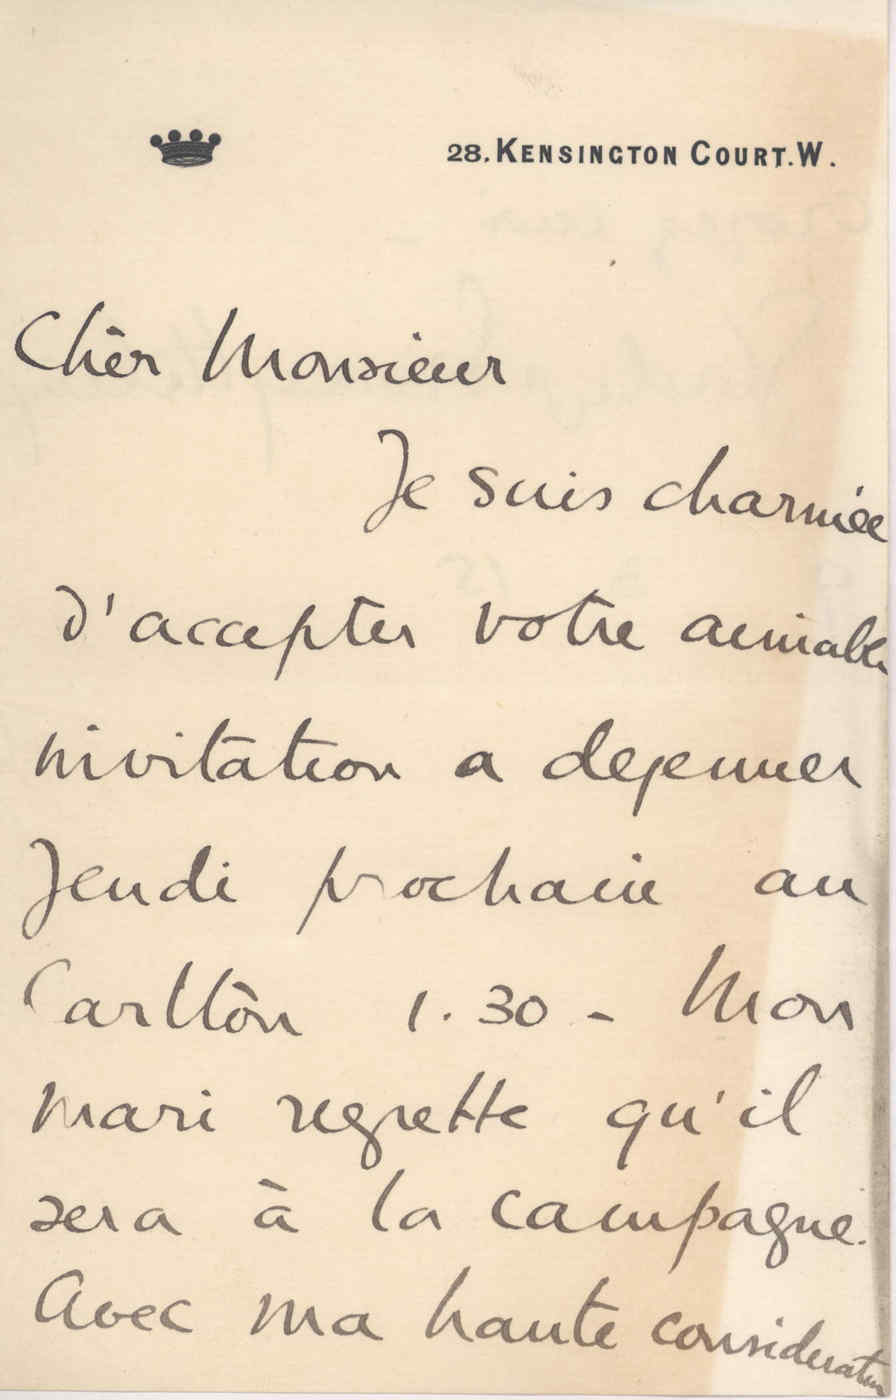 28. KENSINGTON COURT. W.
Chèr Monsieur
Je suis charmée
d'accepter votre aimable
invitation a dejeuner
Jeudi prochain au
Carlton 1.30 - Mon
mari regrette qu'il
sera à la campagne.
Avec ma haute consideration